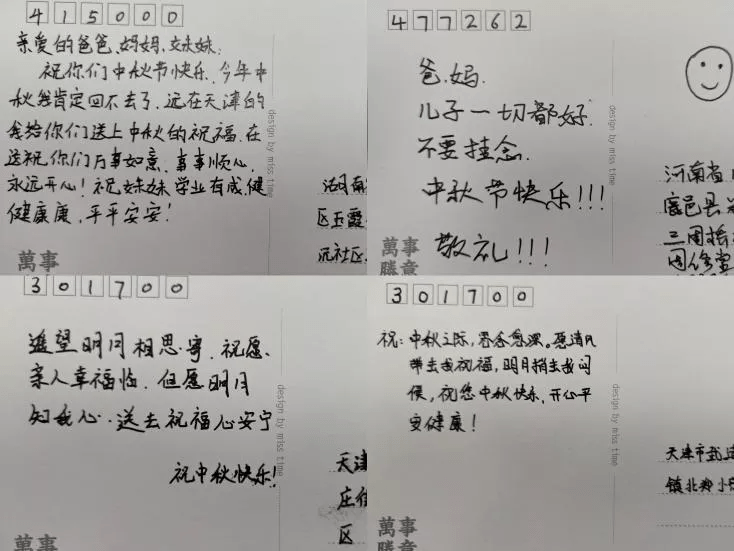 415000
亲爱的爸爸、妈妈、妹妹:
祝你们中秋节快乐、今年中
秋我肯定回不去了、远在天津的
我给你们送上中秋的祝福、在
送祝你们万事如意、事事顺心、
永远开心!祝妹妹学业有成、健
健康康、平平安安!
design by miss time
湖南
区玉霞
沅社区
萬事
477262
爸、妈、
儿子一切都好、
不要挂念、
中秋节快乐!!!
敬礼!!!
design by miss time
河南省
鹿邑县
三
萬事
勝意
301700
遥望明月相思寄、祝愿、
亲人幸福临、但愿明月
知我心·送去祝福心安宁
祝中秋快乐!
design by miss time
天津
庄
区
萬事
301700
祝:中秋之际,思念愈深。愿清风
带去我祝福,明月捎去我问
候,祝您中秋快乐、开心平
安健康!
design by miss time
天津市武清
镇北郑小
萬事
勝意